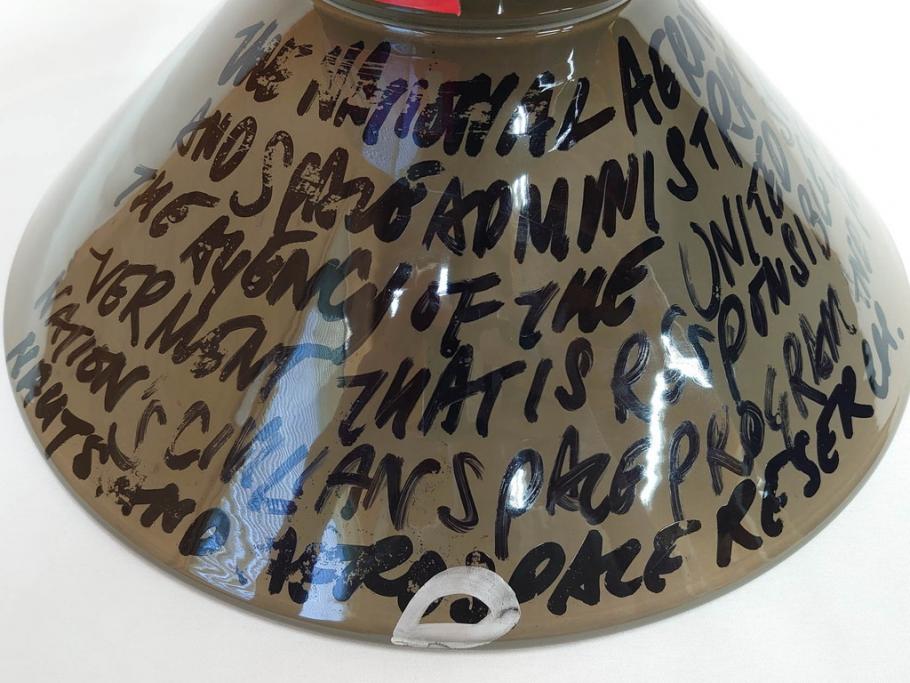 THE NATIONAL AGON
AND SPACE ADMINISTR
THE AGENCY OF THE UNITED
VERMENT THAT IS RESPONSIBLE
NATION'S CIVILIAN SPACE PROGRAM
NAUTS AND AEROSPACE RESERCH.